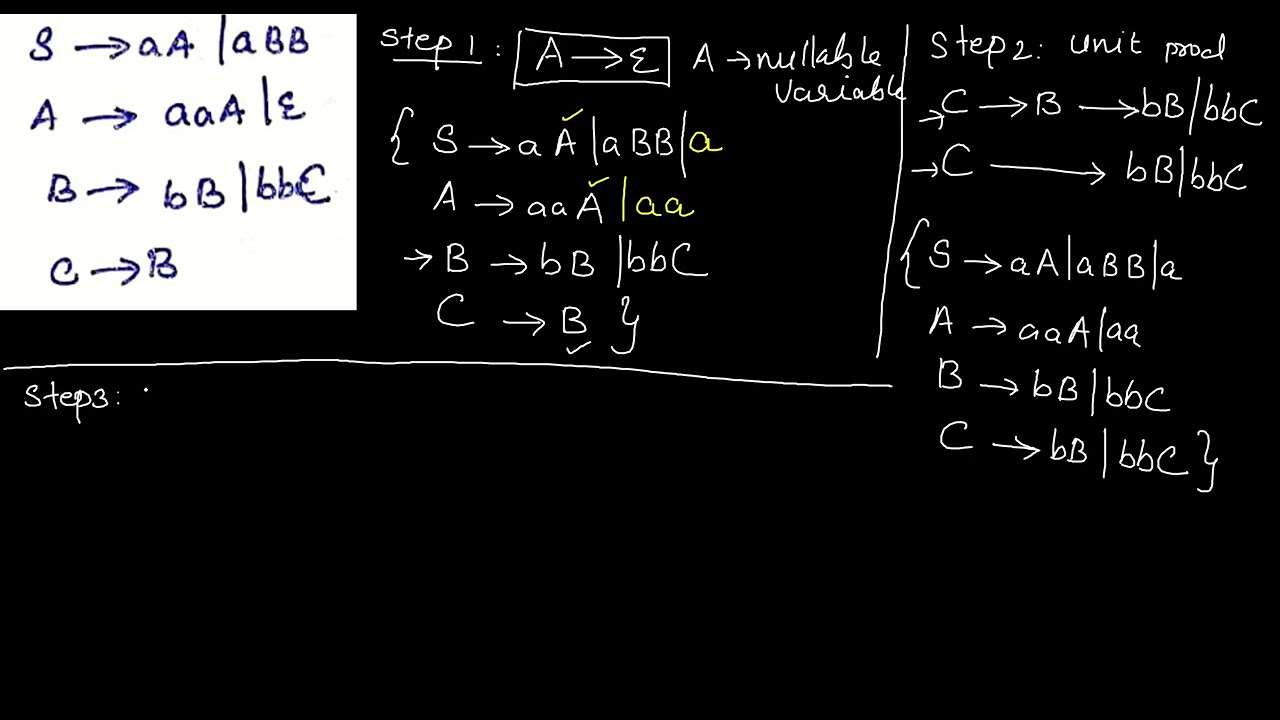 S → aA | aBB
A → aaA | ε
B → bB | bbC
C → B
Step 1 : A → ε A → nullable
variable
{ S → aA | aBB | a
A → aaA | aa
→ B → bB | bbC
C → B }
Step2: Unit prod
→ C → B → bB | bbC
→ C → bB | bbC
{ S → aA | aBB | a
A → aaA | aa
B → bB | bbC
C → bB | bbC }
Step3: